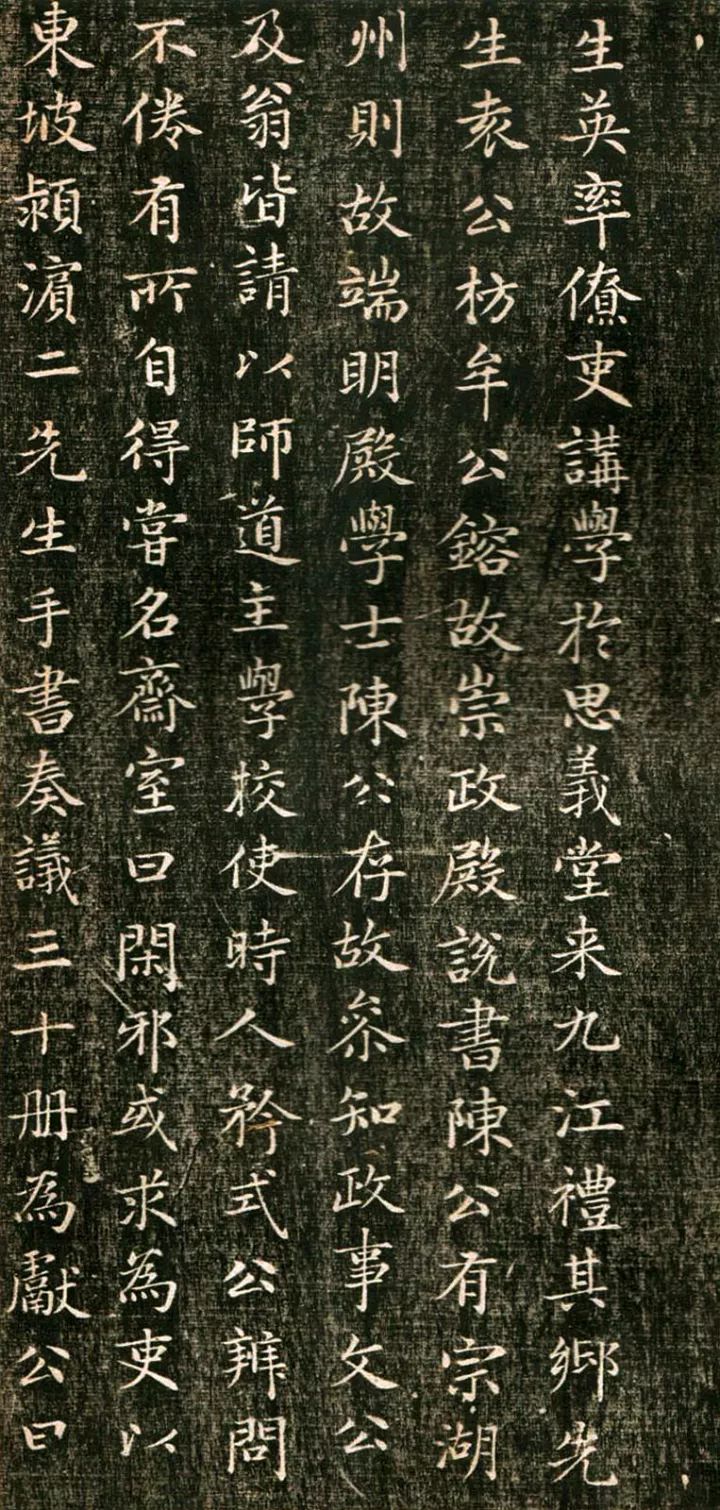 生英率僚吏講學於思義堂来九江禮其鄉先
生袁公枋牟公鎔故崇政殿說書陳公有宗湖
州則故端明殿學士陳公存故叅知政事文公
及翁皆請以師道主學校使時人矜式公辨問
不倦有所自得甞名齋室曰閑邪或求為吏以
東坡潁濵二先生手書奏議三十册為獻公曰